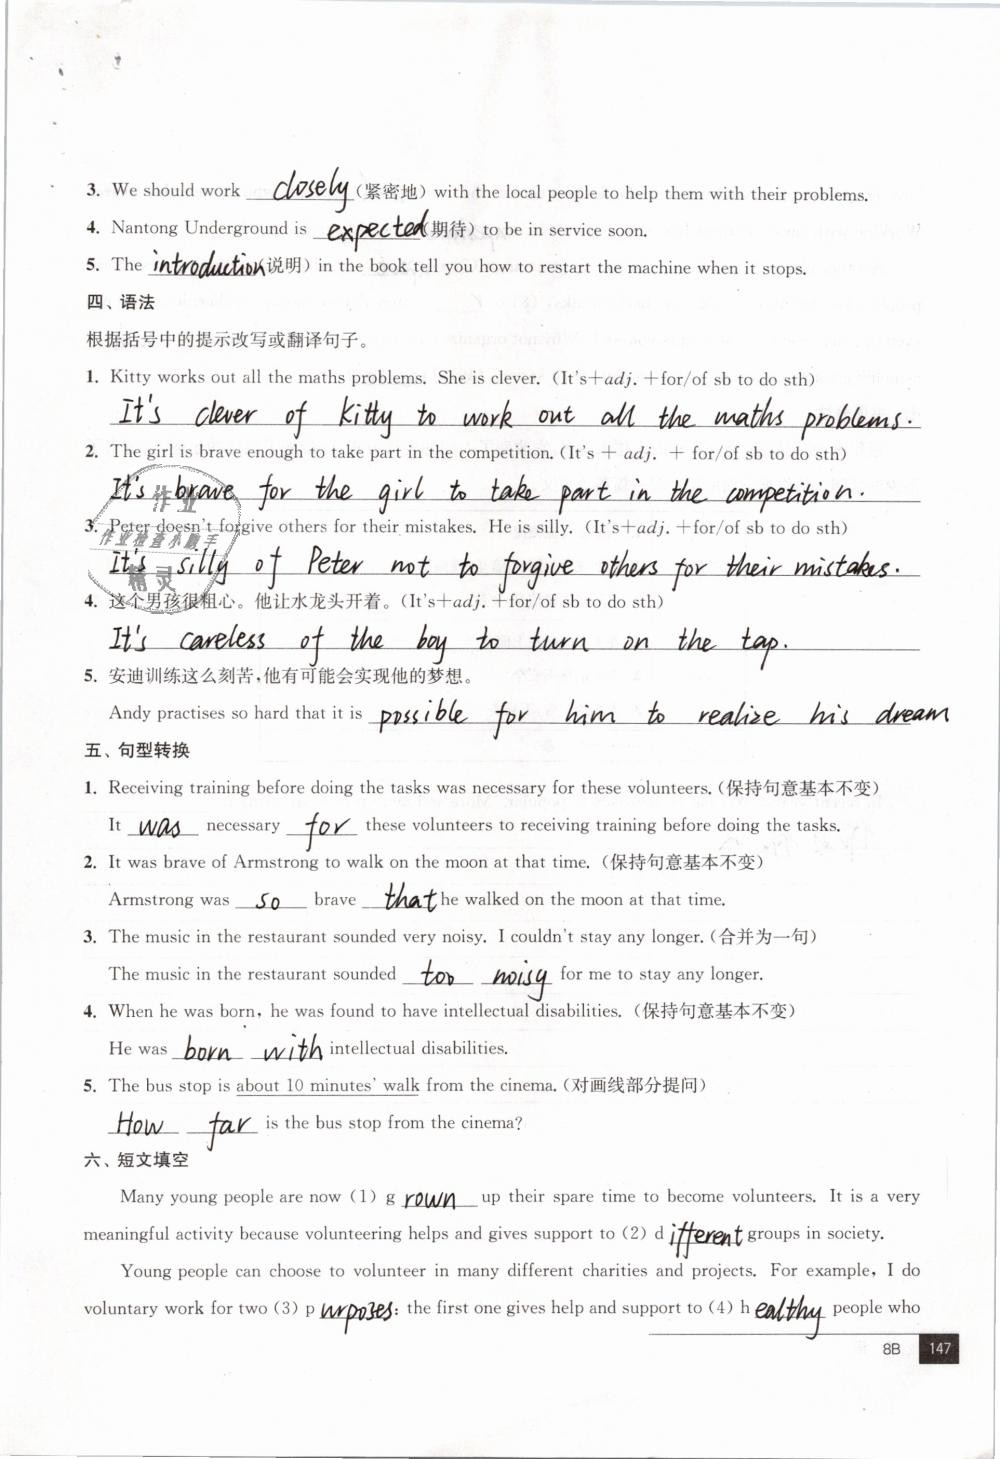 3. We should work closely (紧密地) with the local people to help them with their problems.
4. Nantong Underground is expected (期待) to be in service soon.
5. The introduction (说明) in the book tell you how to restart the machine when it stops.
四、语法
根据括号中的提示改写或翻译句子。
1. Kitty works out all the maths problems. She is clever. (It's+adj. +for/of sb to do sth)
It's clever of Kitty to work out all the maths problems.
2. The girl is brave enough to take part in the competition. (It's + adj. + for/of sb to do sth)
It's brave for the girl to take part in the competition.
3. Peter doesn't forgive others for their mistakes. He is silly. (It's+adj. +for/of sb to do sth)
It's silly of Peter not to forgive others for their mistakes.
4. 这个男孩很粗心。他让水龙头开着。(It's+adj. +for/of sb to do sth)
It's careless of the boy to turn on the tap.
5. 安迪训练这么刻苦,他有可能会实现他的梦想。
Andy practises so hard that it is possible for him to realize his dream
五、句型转换
1. Receiving training before doing the tasks was necessary for these volunteers. (保持句意基本不变)
It was necessary for these volunteers to receiving training before doing the tasks.
2. It was brave of Armstrong to walk on the moon at that time. (保持句意基本不变)
Armstrong was so brave that he walked on the moon at that time.
3. The music in the restaurant sounded very noisy. I couldn't stay any longer. (合并为一句)
The music in the restaurant sounded too noisy for me to stay any longer.
4. When he was born, he was found to have intellectual disabilities. (保持句意基本不变)
He was born with intellectual disabilities.
5. The bus stop is about 10 minutes' walk from the cinema. (对画线部分提问)
How far is the bus stop from the cinema?
六、短文填空
Many young people are now (1) grown up their spare time to become volunteers. It is a very
meaningful activity because volunteering helps and gives support to (2) different groups in society.
Young people can choose to volunteer in many different charities and projects. For example, I do
voluntary work for two (3) purposes: the first one gives help and support to (4) healthy people who
8B 147
作业
作业检查小助手
精灵